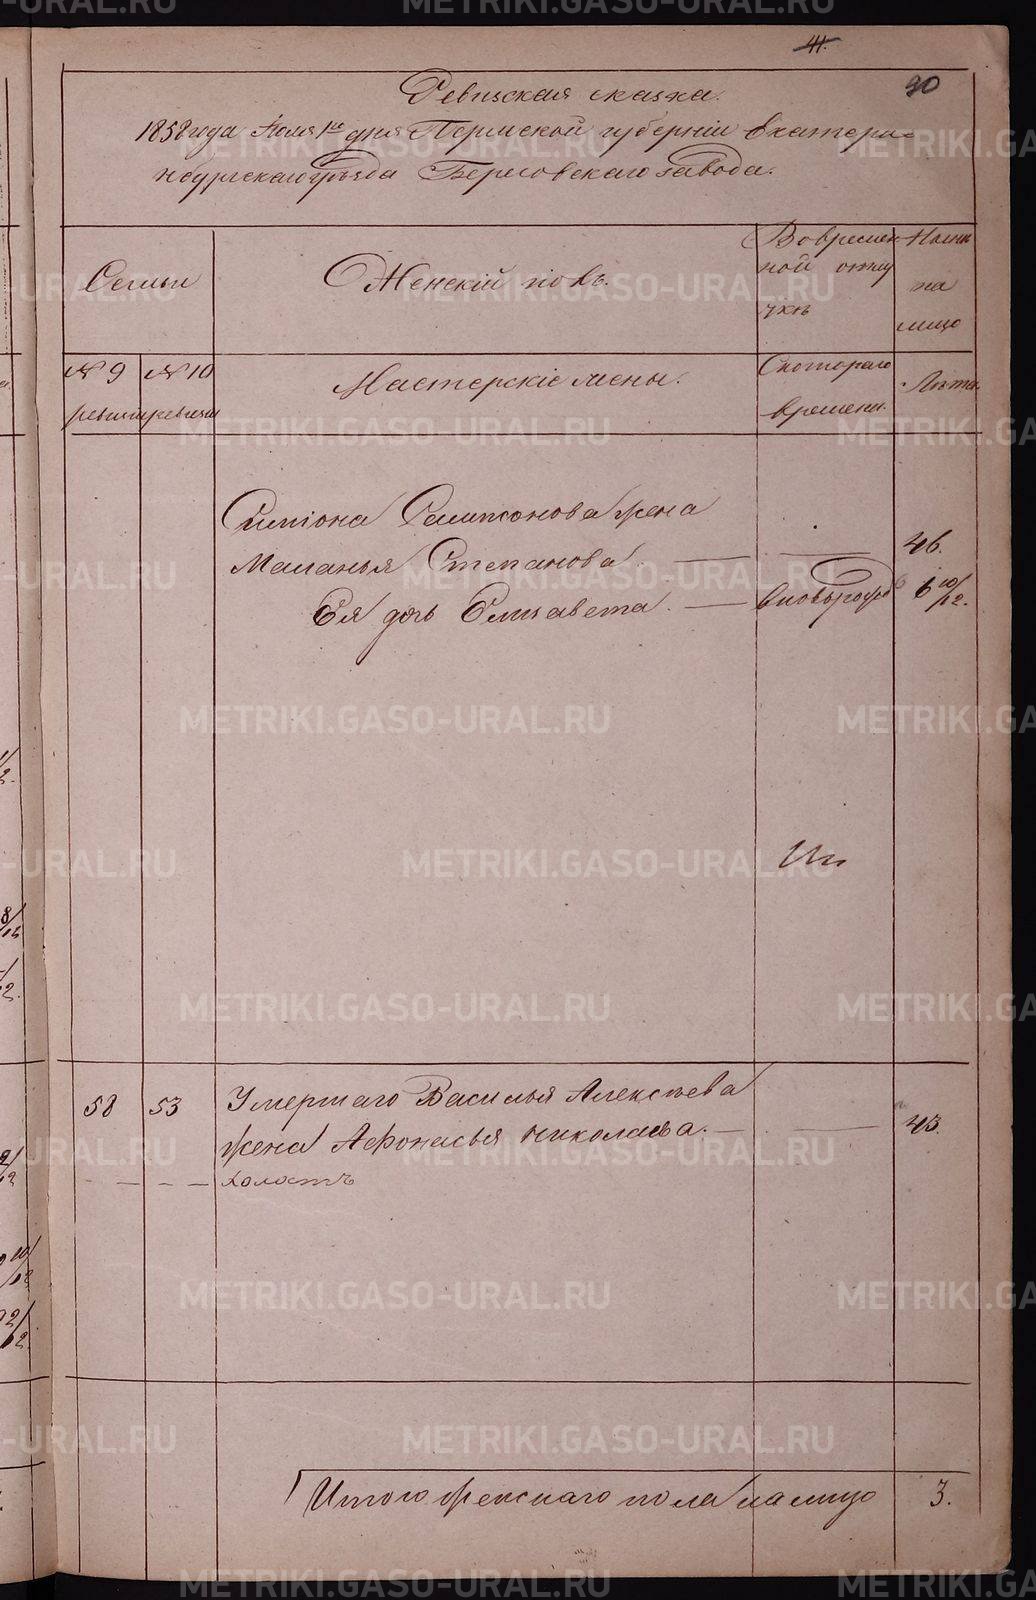 41.
90
Ревизская сказка.
1858 года Июля 1го дня Пермской губернии Екатерин-
бургскаго уѣзда Березовскаго завода.
Семьи
Женскій полъ.
Во времен-
ной отлу
чкѣ
Ныни
на
лицо
№ 9 ревизіи
№ 10 ревизіи
Мастерскіе жены.
Скотораго
времени.
Лѣта.
Симіона Сампсонова жена
Маланья Степанова — — 46.
Ея дочь Елизавета. — вновьрожд 6 10/12.
58 53 Умершаго Василья Алексѣева
жена Афонасья Николаева. — — 43.
— — — — холостъ
Итого женскаго пола на лицо 3.
METRIKI.GASO-URAL.RU